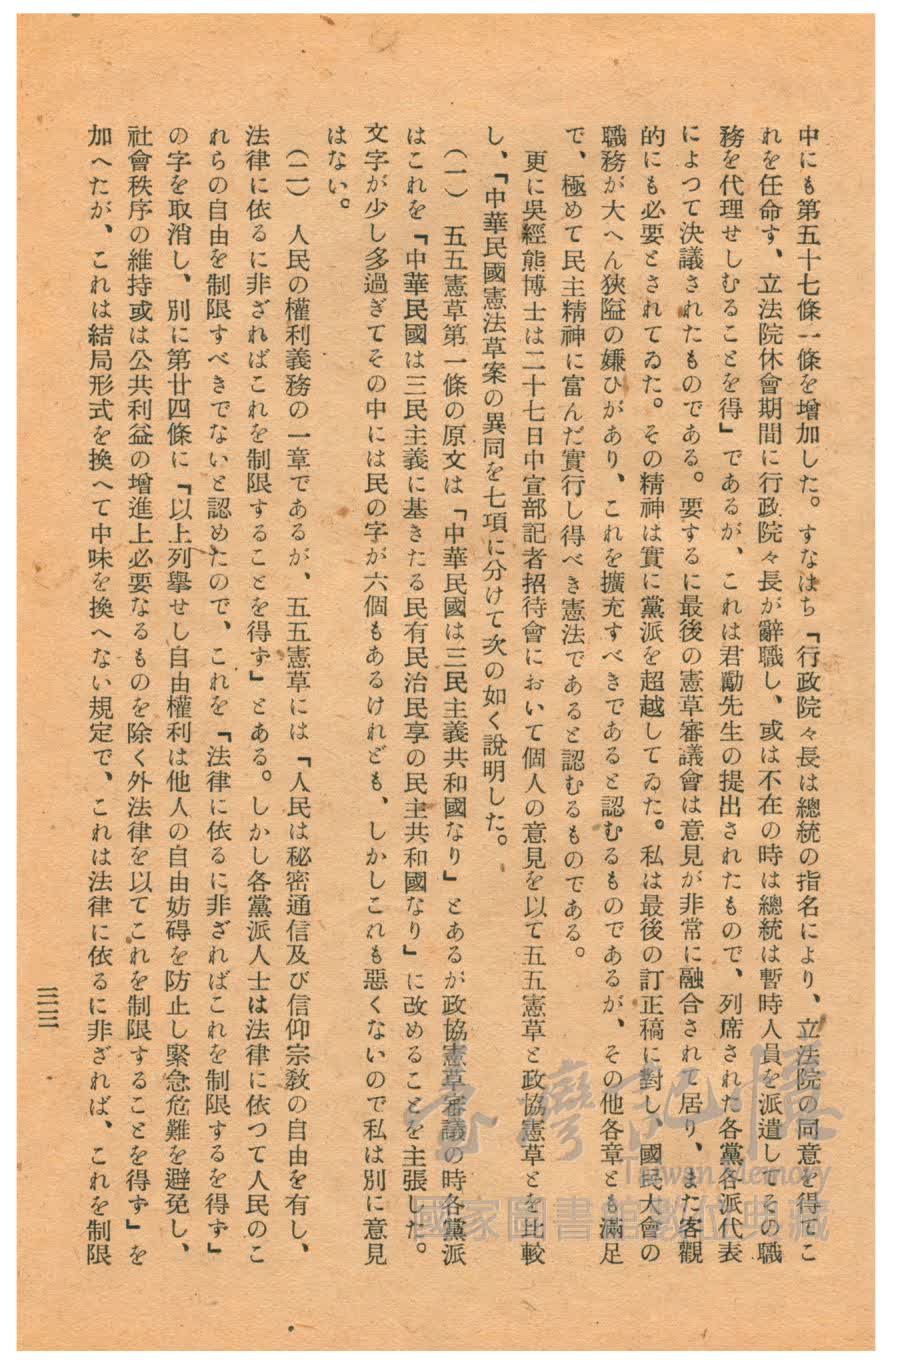 中にも第五十七條一條を增加した。すなはち「行政院々長は總統の指名により、立法院の同意を得てこ
れを任命す、立法院休會期間に行政院々長が辭職し、或は不在の時は總統は暫時人員を派遣してその職
務を代理せしむることを得」であるが、これは君勱先生の提出されたもので、列席された各黨各派代表
によつて決議されたものである。要するに最後の憲草審議會は意見が非常に融合されて居り、また客觀
的にも必要とされてゐた。その精神は實に黨派を超越してゐた。私は最後の訂正稿に對し、國民大會の
職務が大へん狹隘の嫌ひがあり、これを擴充すべきであると認むるものであるが、その他各章とも滿足
で、極めて民主精神に富んだ實行し得べき憲法であると認むるものである。
更に吳經熊博士は二十七日中宣部記者招待會において個人の意見を以て五五憲草と政協憲草とを比較
し、「中華民國憲法草案の異同を七項に分けて次の如く說明した。
（一）　五五憲草第一條の原文は「中華民國は三民主義共和國なり」とあるが政協憲草審議の時各黨派
はこれを「中華民國は三民主義に基きたる民有民治民享の民主共和國なり」に改めることを主張した。
文字が少し多過ぎてその中には民の字が六個もあるけれども、しかしこれも惡くないので私は別に意見
はない。
（二）　人民の權利義務の一章であるが、五五憲草には「人民は秘密通信及び信仰宗教の自由を有し、
法律に依るに非ざればこれを制限することを得ず」とある。しかし各黨派人士は法律に依つて人民のこ
れらの自由を制限すべきでないと認めたので、これを「法律に依るに非ざればこれを制限するを得ず」
の字を取消し、別に第廿四條に「以上列擧せし自由權利は他人の自由妨碍を防止し緊急危難を避免し、
社會秩序の維持或は公共利益の增進上必要なるものを除く外法律を以てこれを制限することを得ず」を
加へたが、これは結局形式を換へて中味を換へない規定で、これは法律に依るに非ざれば、これを制限
三三
臺灣記憶
Taiwan Memory
國家圖書館數位典藏